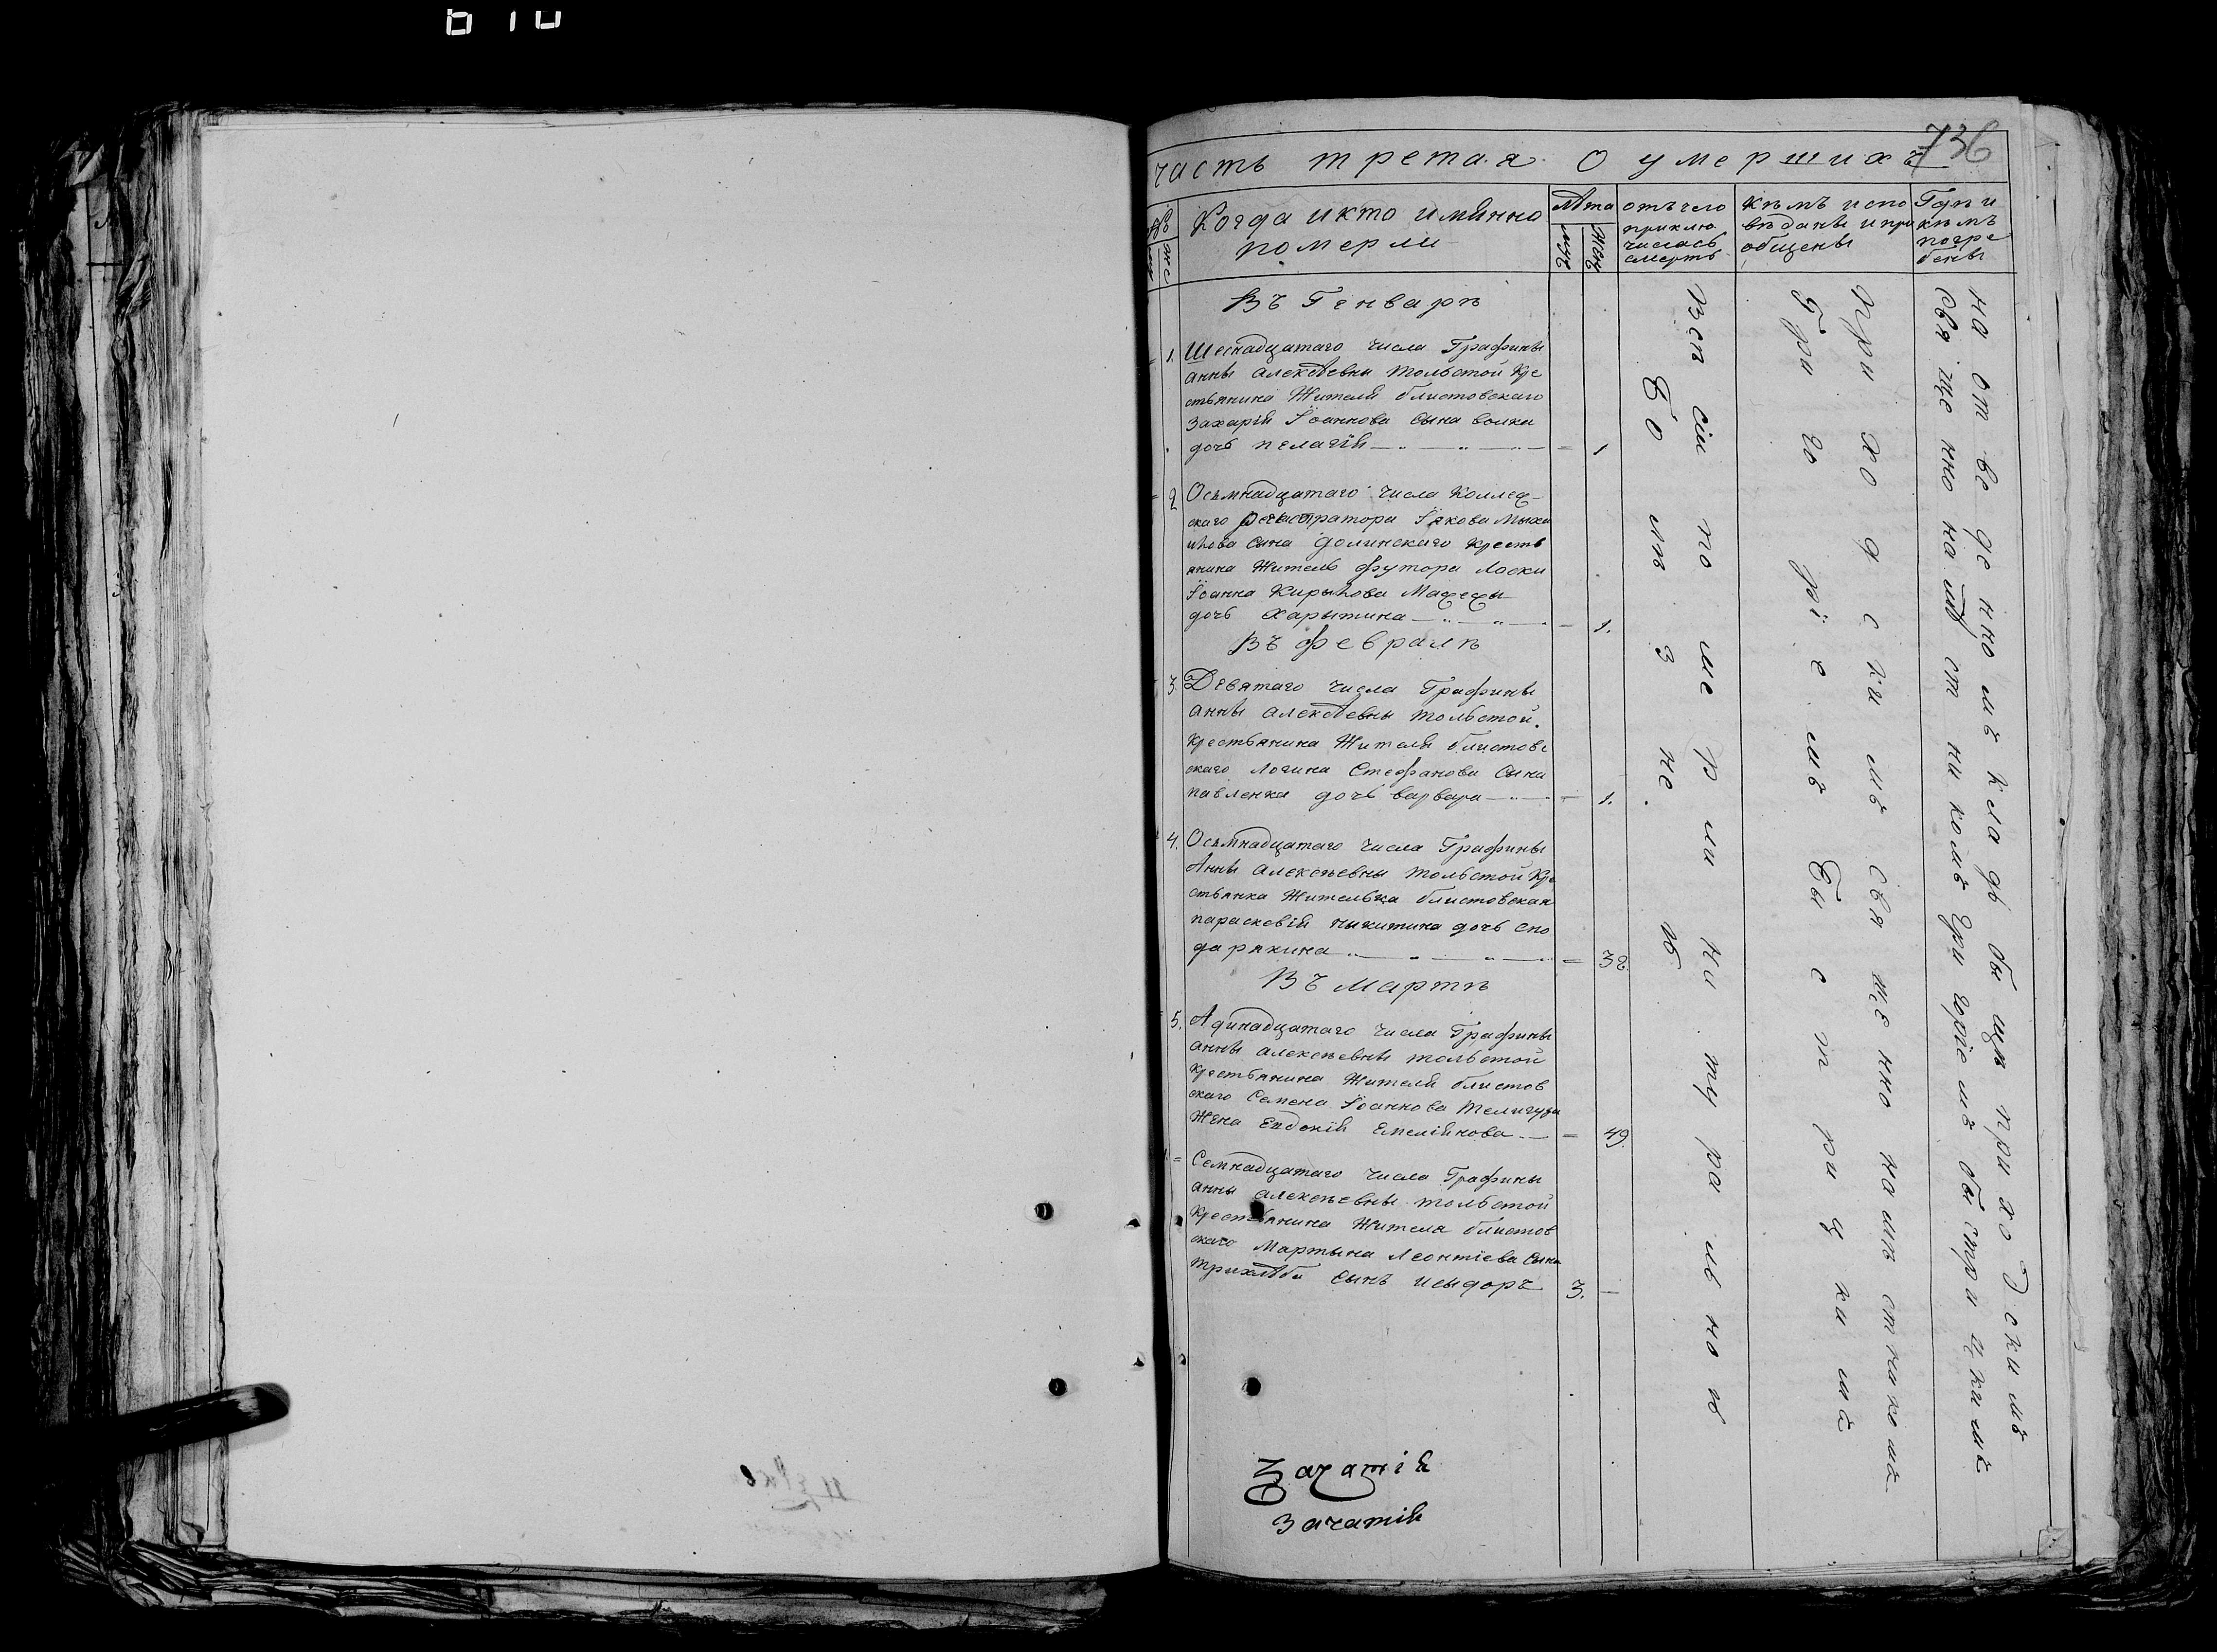 736
часть третая О умершихъ
Когда икто имянно
померли
Лѣта
муж
жен
отъчего
приклю
чилась
смерть
кѣмъ испо
вѣданы и при
общены
Гдѣ и
кѣмъ
погре
бены
Въ Генварѣ
1. Шеснадцатаго числа Графины
анны алексѣевны толстой Кре
стьянина Жителя блистовскаго
Захарія Іоаннова сына волка
дочь пелагія 1
2 Осьмнадцатаго числа Коллеж
скаго регистратора Іакова
сина долинскаго кресть
янина Житель футора Лоски
Іоанна Кирылова
дочь Харытина 1.
Въ февралѣ
3. Девятаго числа Графины
анны алексѣевны толстой.
крестьянина Жителя блистов
скаго Логина Стефанова Сина
павленка дочь варвара 1.
4. Осьмнадцатаго числа Графины
Анны алексѣевны толстой Кре
стьянка Жителька блистовская
парасковія ныкитина дочь спо
дарякина 32.
Въ мартѣ
5. Адинадцатаго числа Графины
анны алексѣевны толстой
крестьянина Жителя блистов
скаго Семена Іоаннова
Жена Евдокія Емеліянова 49
Семнадцатаго числа Графины
анны алексѣевны толстой
Крестьянина Жителя блистов
скаго Мартына Леонтіева сына
трихлѣба сынъ исыдоръ 3.
Всѣ сіи померли натурально
болѣзнею
приходскимъ священнонамѣстникомъ
Григоріемъ Быстрицкимъ
на отведенномъ кладбищѣ приходскимъ
священнонамѣстникомъ Григоріемъ быстрицкимъ
Зачатія
Зачатія